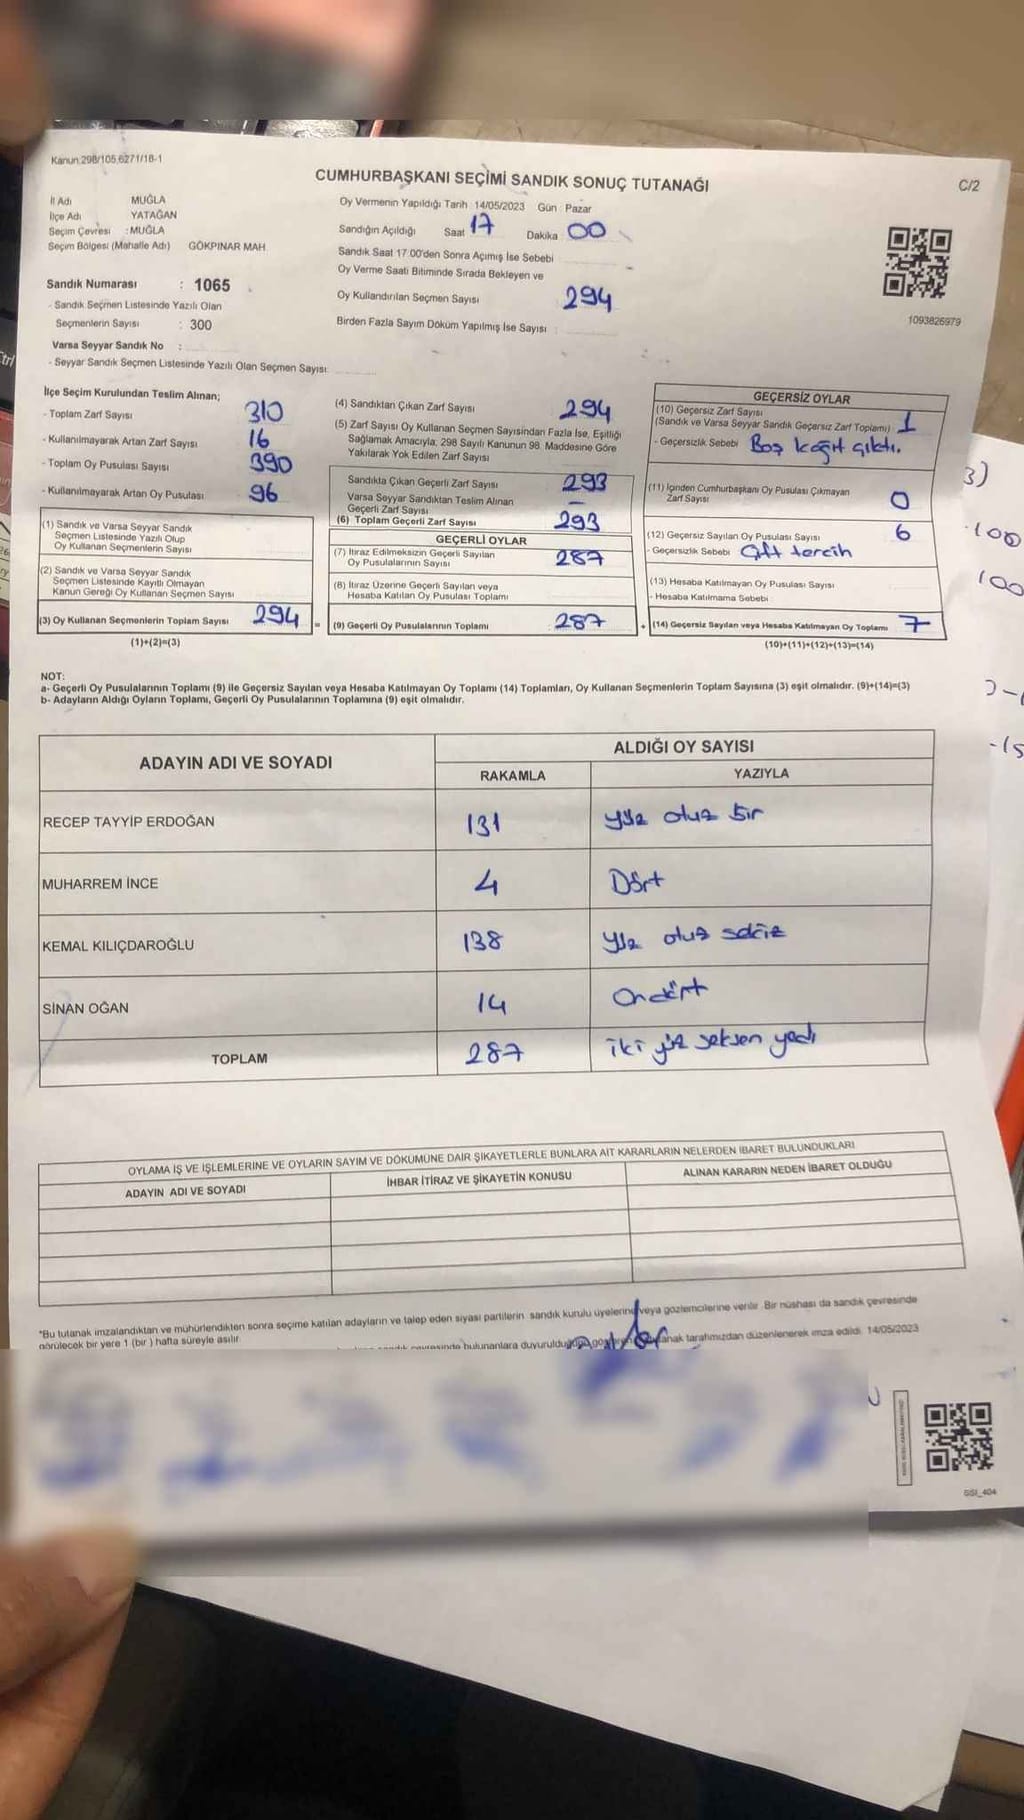 Kanun:298/105,6271/18-1
CUMHURBAŞKANI SEÇİMİ SANDIK SONUÇ TUTANAĞI
C/2
İl Adı MUĞLA
İlçe Adı YATAĞAN
Seçim Çevresi : MUĞLA
Seçim Bölgesi (Mahalle Adı) GÖKPINAR MAH.
Sandık Numarası : 1065
- Sandık Seçmen Listesinde Yazılı Olan
Seçmenlerin Sayısı : 300
Varsa Seyyar Sandık No :
- Seyyar Sandık Seçmen Listesinde Yazılı Olan Seçmen Sayısı:
Oy Vermenin Yapıldığı Tarih : 14/05/2023 Gün : Pazar
Sandığın Açıldığı Saat 17 Dakika 00
Sandık Saat 17:00'den Sonra Açımış İse Sebebi
Oy Verme Saati Bitiminde Sırada Bekleyen ve
Oy Kullandırılan Seçmen Sayısı 294
Birden Fazla Sayım Döküm Yapılmış İse Sayısı :
1093826979
İlçe Seçim Kurulundan Teslim Alınan;
- Toplam Zarf Sayısı 310
- Kullanılmayarak Artan Zarf Sayısı 16
- Toplam Oy Pusulası Sayısı 390
- Kullanılmayarak Artan Oy Pusulası 96
(1) Sandık ve Varsa Seyyar Sandık
Seçmen Listesinde Yazılı Olup
Oy Kullanan Seçmenlerin Sayısı
(2) Sandık ve Varsa Seyyar Sandık
Seçmen Listesinde Kayıtlı Olmayan
Kanun Gereği Oy Kullanan Seçmen Sayısı
(3) Oy Kullanan Seçmenlerin Toplam Sayısı 294 =
(1)+(2)=(3)
(4) Sandıktan Çıkan Zarf Sayısı 294
(5) Zarf Sayısı Oy Kullanan Seçmen Sayısından Fazla İse, Eşitliği
Sağlamak Amacıyla, 298 Sayılı Kanunun 98. Maddesine Göre
Yakılarak Yok Edilen Zarf Sayısı
Sandıkta Çıkan Geçerli Zarf Sayısı 293
Varsa Seyyar Sandıktan Teslim Alınan
Geçerli Zarf Sayısı —
(6) Toplam Geçerli Zarf Sayısı 293
GEÇERLİ OYLAR
(7) İtiraz Edilmeksizin Geçerli Sayılan
Oy Pusulalarının Sayısı 287
(8) İtiraz Üzerine Geçerli Sayılan veya
Hesaba Katılan Oy Pusulası Toplamı
(9) Geçerli Oy Pusulalarının Toplamı 287 +
GEÇERSİZ OYLAR
(10) Geçersiz Zarf Sayısı
(Sandık ve Varsa Seyyar Sandık Geçersiz Zarf Toplamı) 1
- Geçersizlik Sebebi Boş kağıt çıktı.
(11) İçinden Cumhurbaşkanı Oy Pusulası Çıkmayan
Zarf Sayısı 0
(12) Geçersiz Sayılan Oy Pusulası Sayısı 6
- Geçersizlik Sebebi Çift tercih
(13) Hesaba Katılmayan Oy Pusulası Sayısı
- Hesaba Katılmama Sebebi
(14) Geçersiz Sayılan veya Hesaba Katılmayan Oy Toplamı 7
(10)+(11)+(12)+(13)=(14)
3)
100
100
-15
NOT:
a- Geçerli Oy Pusulalarının Toplamı (9) ile Geçersiz Sayılan veya Hesaba Katılmayan Oy Toplamı (14) Toplamları, Oy Kullanan Seçmenlerin Toplam Sayısına (3) eşit olmalıdır. (9)+(14)=(3)
b- Adayların Aldığı Oyların Toplamı, Geçerli Oy Pusulalarının Toplamına (9) eşit olmalıdır.
ADAYIN ADI VE SOYADI ALDIĞI OY SAYISI
RAKAMLA YAZIYLA
RECEP TAYYİP ERDOĞAN 131 yüz otuz bir
MUHARREM İNCE 4 Dört
KEMAL KILIÇDAROĞLU 138 yüz otuz sekiz
SİNAN OĞAN 14 Ondört
TOPLAM 287 iki yüz seksen yedi
OYLAMA İŞ VE İŞLEMLERİNE VE OYLARIN SAYIM VE DÖKÜMÜNE DAİR ŞİKAYETLERLE BUNLARA AİT KARARLARIN NELERDEN İBARET BULUNDUKLARI
ADAYIN ADI VE SOYADI İHBAR İTİRAZ VE ŞİKAYETİN KONUSU ALINAN KARARIN NEDEN İBARET OLDUĞU
*Bu tutanak imzalandıktan ve mühürlendikten sonra seçime katılan adayların ve talep eden siyasi partilerin sandık kurulu üyelerine veya gözlemcilerine verilir. Bir nüshası da sandık çevresinde
görülecek bir yere 1 (bir) hafta süreyle asılır.
bulunanlara duyurulduğunu tarafımızdan düzenlenerek imza edildi. 14/05/2023
SSI_404